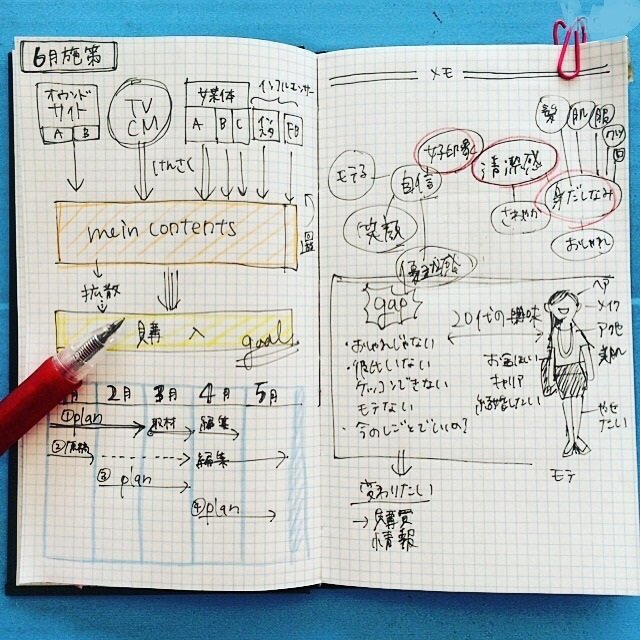 6月施策
オウンドサイト
A B
TV
CM
女媒体
A B C
インフルエンサー
FB
けんさく
mein contents
拡散
購入
goal
2月 3月 4月 5月
①plan
取材 編集
②
編集
③plan
④plan
メモ
髪 肌 服
女子印象
清潔感
モテる
自信
身だしなみ
さわやか
笑顔
おしゃれ
優越感
gap
20代の趣味
・おしゃれじゃない
・彼氏いない
ケッコンできない
モテない
・今のしごとでいいの?
お金ほしい
キャリア
結婚したい
ヘア
メイク
アクセ
美肌
やせたい
モテ
変わりたい
→購買
情報